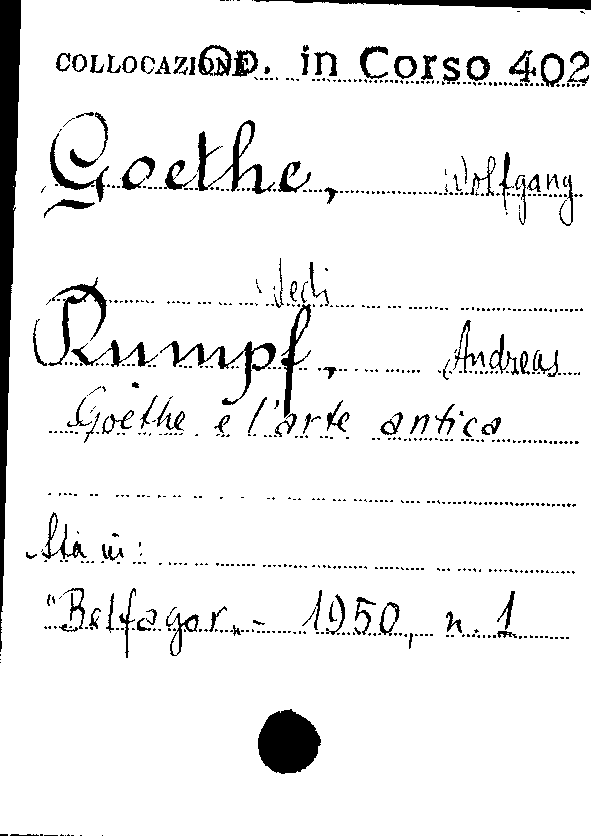 COLLOCAZIONE Op. in Corso 402
Goethe, Wolfgang
Vedi
Rumpf, Andreas
Goethe e l'arte antica
Sta in:
"Belfagor„ - 1950, n. 1